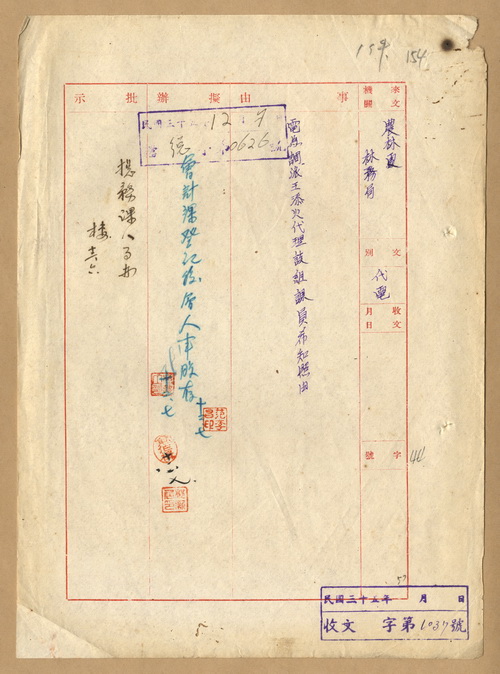 159. 154
來文
機關
農林處
林務局
文
別
代電
收文
月
日
字
號
事
由
電為調派王添火代理該組課員希知照由
擬
辦
民國三十五年12月9
總 字 0626 號
會計課登記後存人事股存
十二、七
批
示
總務課人事办
樓 十二、六
民國三十五年 月 日
收文 字第1037號